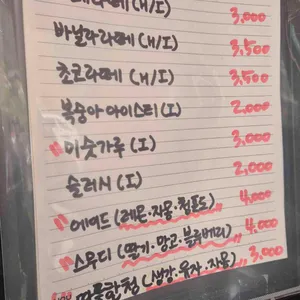 라떼 (H/I) 3,000
바닐라라떼 (H/I) 3,500
초코라떼 (H/I) 3,500
복숭아 아이스티 (I) 2,000
미숫가루 (I) 3,000
슬러시 (I) 2,000
에이드 (레몬·자몽·청포도) 4,000
스무디 (딸기·망고·블루베리) 4,000
따뜻한 청 (생강·유자·자몽) 3,000